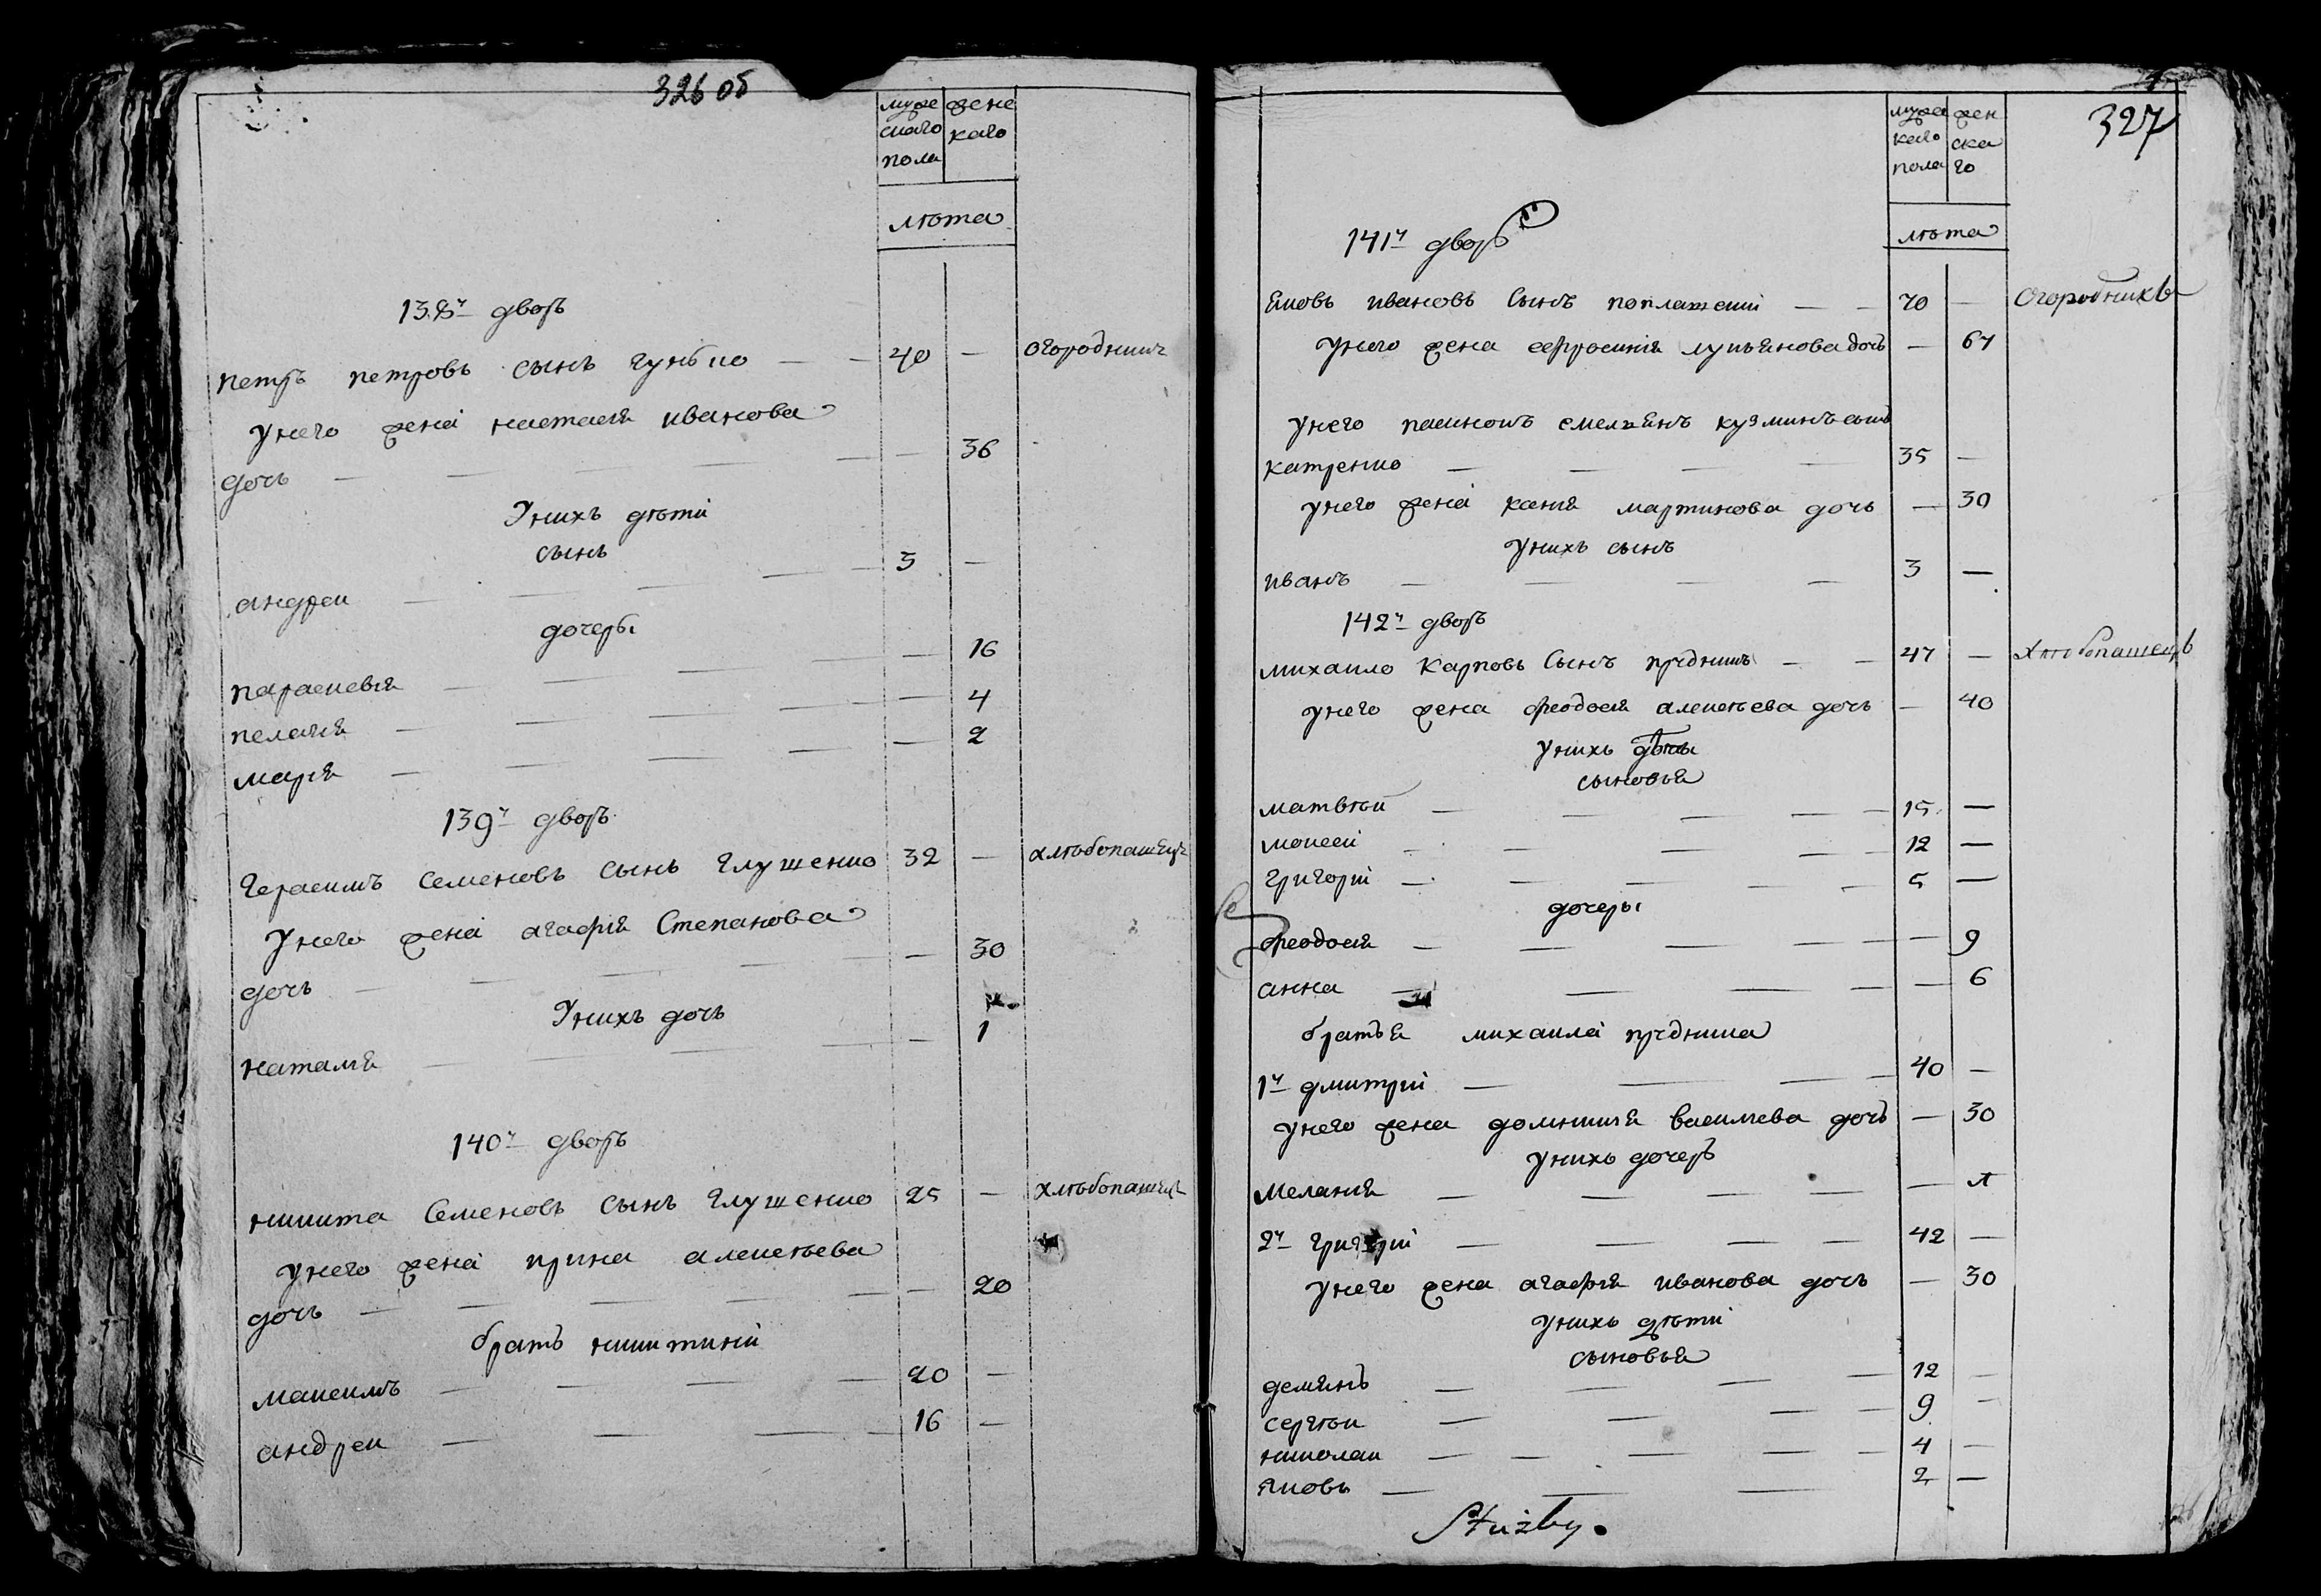 326 об
муже женс
скаго каго
пола
лѣта
138й дворъ
петръ петровъ сынъ гунько — — 40 — огородникъ
у него жена настасія иванова
дочь — — — — — — 36
У нихъ дѣти
сынъ
андреи — — — — 3 —
дочеры
парасковія — — — — 16
пелагія — — — — — 4
марія — — — — — 2
139й дворъ
герасимъ семеновъ сынъ глущенко 32 — хлѣбопашецъ
У него жена агафія Степанова
дочь — — — — — 30
У нихъ дочь
наталія — — — — — 1
140й дворъ
никита Семеновъ сынъ глущенко 25 — хлѣбопашецъ
у него жена ирина алексѣева
дочь — — — — — — 20
братъ никитинъ
максимъ — — — — 20 —
андреи — — — — 16 —
327
мужес жен
каго ска
пола го
лѣта
141й дворъ
яковъ ивановъ Сынъ — — 70 — Огородникъ
у него жена ефросинія лукьянова дочь — 67
у него емельянъ кузминъ сынъ
катренко — — — — 35 —
у него жена ксенія мартинова дочь — 30
у нихъ сынъ
иванъ — — — — 3 —
142й дворъ
михаило Карповъ Сынъ — — 47 — Хлѣбопашецъ
у него жена феодосія алексѣева дочь — 40
у нихъ дѣты
сыновья
матвѣй — — — — — 15 —
моисей — — — — 12 —
григорій — — — — — 5 —
дочеры
феодосія — — — — — — 9
анна — — — — — 6
братья михаила
1й дмитрій — — — 40 —
у него жена домникія василиева дочь — 30
у нихъ дочеръ
меланія — — — — —
2й григорій — — — — 42 —
у него жена агафія иванова дочь — 30
у нихъ дѣти
сыновья
демянъ — — — — 12 —
сергѣи — — — — 9 —
николаи — — — — — 4 —
яковъ — — — 2 —
Służby.